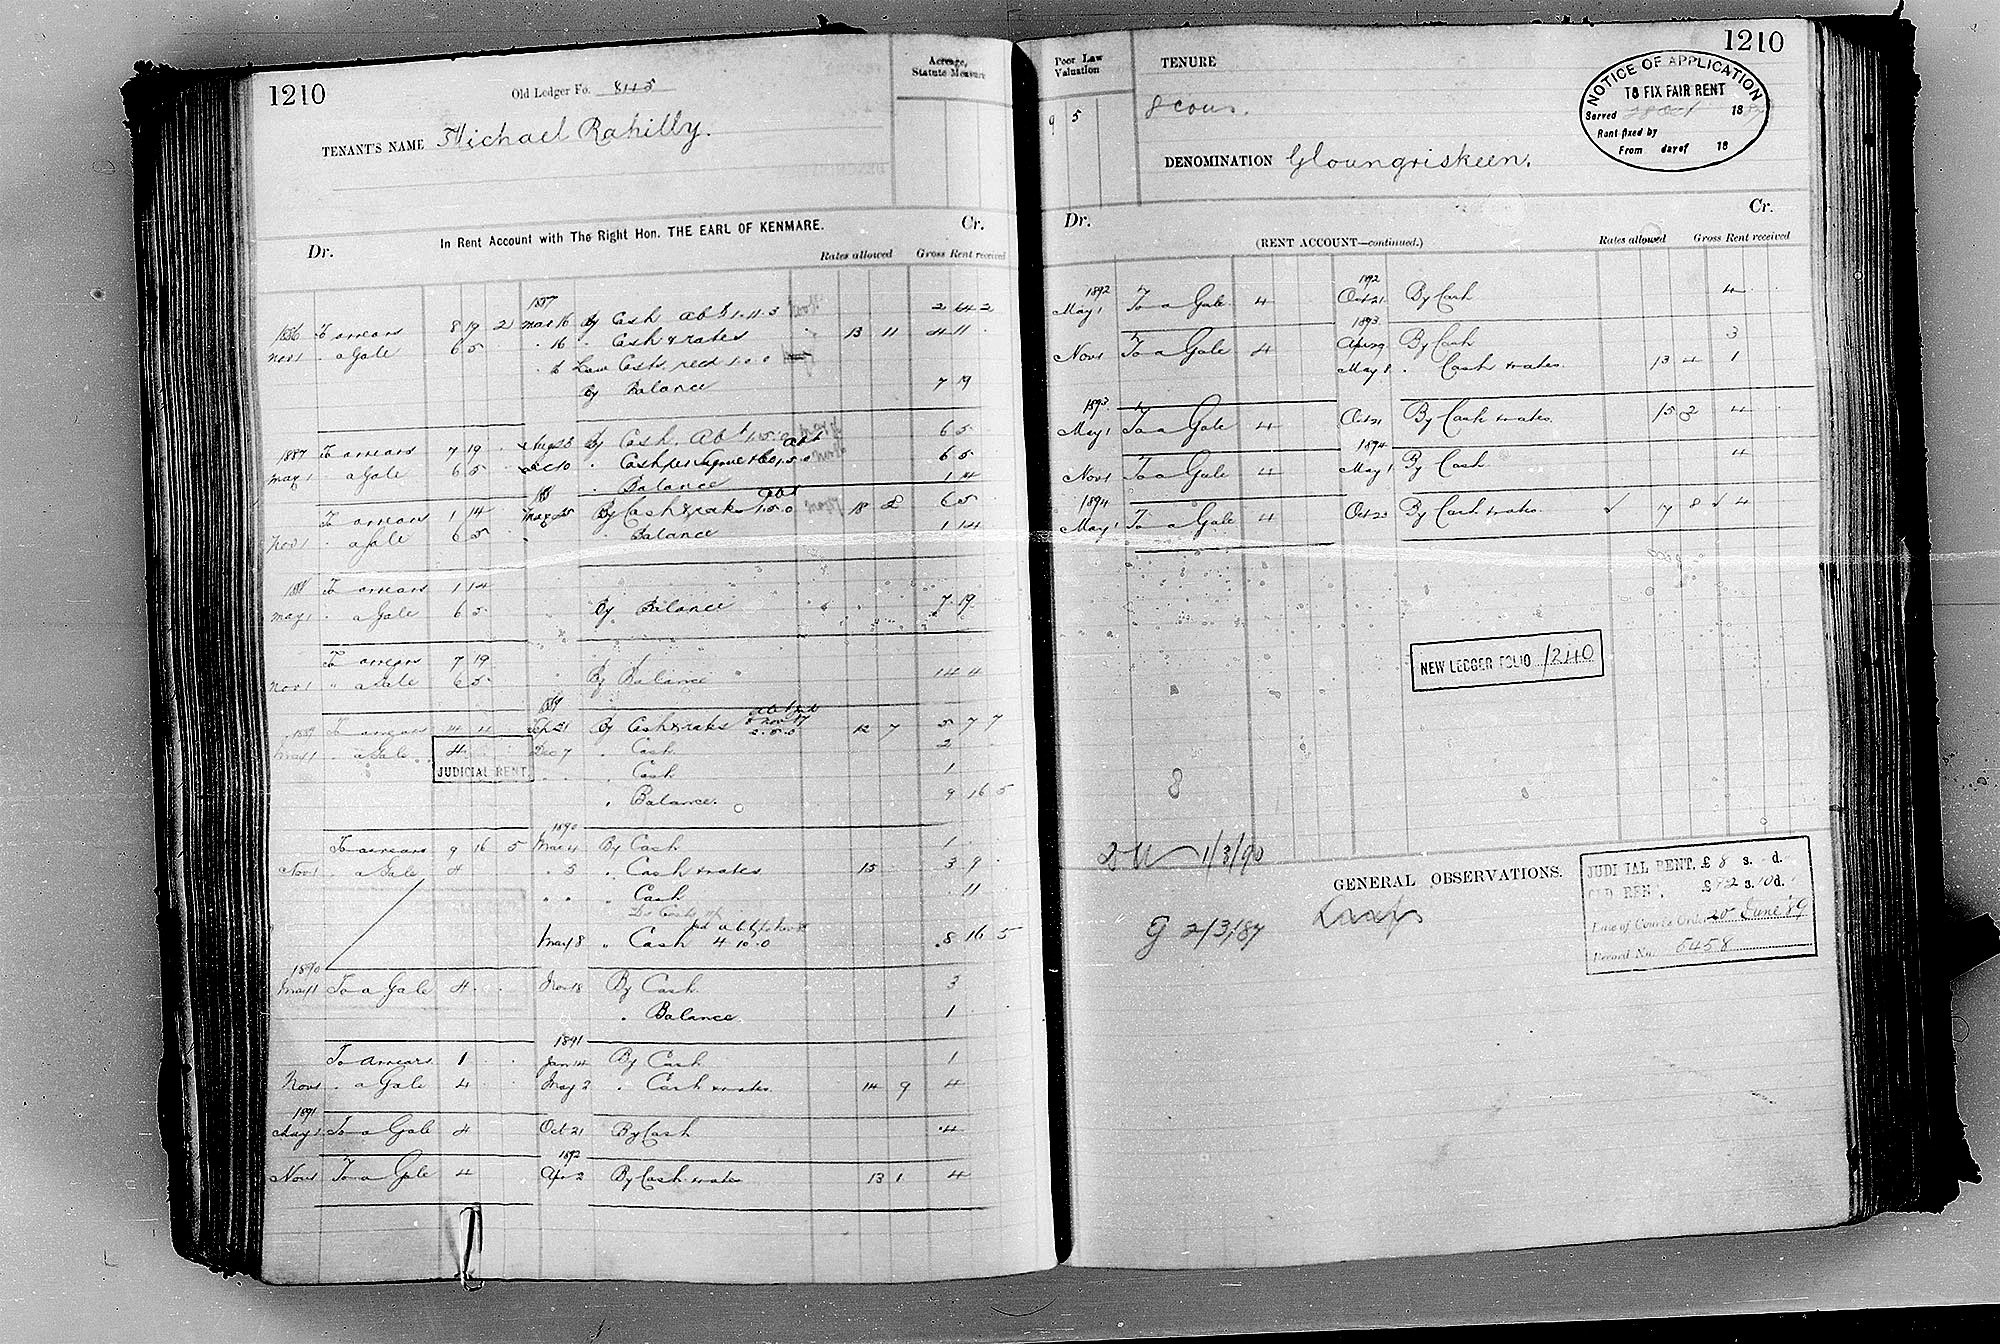 1210
Old Ledger Fo. 845
TENANT'S NAME Michael Rahilly.
Acreage, Statute Measure
In Rent Account with The Right Hon. THE EARL OF KENMARE.
Dr. Cr.
Rates allowed Gross Rent received
1887
1886 To arrears 8 19 2 Mar 16 By Cash Abt 1.11.3
Nov 1 " a Gale 6 5 " 16 " Cash & rates 13 11 4 11
" 16 Law Costs recd 1.0.0
By Balance 7 19
1887 To arrears 7 19 Aug 23 By Cash. Abt 1.5.0 6 5
May 1 " a Gale 6 5 Dec 10 " Cash per 6 5
" Balance 1 14
To arrears 1 14 May 25 By Cash & rates Abt 1.5.0 18 2 6 5
Nov 1 " a Gale 6 5 " Balance 1 14
1888 To arrears 1 14
May 1 " a Gale 6 5 By Balance 7 19
To arrears 7 19
Nov 1 " a Gale 6 5 By Balance 14 4
1889
1889 To arrears 14 4 Sep 21 By Cash & rates 12 7 5 7 7
May 1 " a Gale 4 Dec 7 " Cash 2
JUDICIAL RENT " Cash 1
" Balance. 9 16 5
1890
To arrears 9 16 5 Mar 4 By Cash 1
Nov 1 " a Gale 4 " 5 " Cash & rates 15 3 9
" " " Cash 11
May 8 " Cash 4 10 0 8 16 5
1890
May 1 To a Gale 4 Nov 18 By Cash 3
" Balance 1
1891
To arrears 1 Jan 14 By Cash 1
Nov 1 " a Gale 4 May 2 " Cash & rates 14 9 4
1891
May 1 To a Gale 4 Oct 21 By Cash 4
1892
Nov 1 To a Gale 4 Apr 2 By Cash & rates 13 1 4
1210
Poor Law Valuation
9 5
TENURE
8 cows.
DENOMINATION Gloungriskeen.
NOTICE OF APPLICATION
TO FIX FAIR RENT
Served 28 Oct 1887
Rent fixed by
From day of 18
Dr. Cr.
(RENT ACCOUNT—continued.)
Rates allowed Gross Rent received
1892 1892
May 1 To a Gale 4 Oct 21 By Cash 4
1893
Nov 1 To a Gale 4 Apr 29 By Cash 3
May 8 " Cash & rates. 13 4 1
1893
May 1 To a Gale 4 Oct 21 By Cash & rates. 15 2 4
1894
Nov 1 To a Gale 4 May 1 By Cash 4
1894
May 1 To a Gale 4 Oct 23 By Cash & rates. 17 8 4
NEW LEDGER FOLIO 1240
8
1/3/90
GENERAL OBSERVATIONS.
G 2/3/87
JUDICIAL RENT, £8 s. d.
OLD RENT, £12 s. 10 d.
Date of Courts Order 20 June '89
Record No. 5458